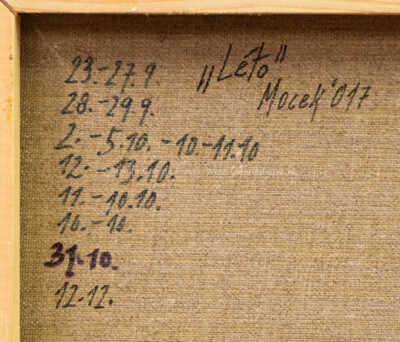 23.-27.9.
28.-29.9.
2.-5.10.-10.-11.10
12.-13.10.
11.-10.10.
16.-10.
31.10.
12.12.
„Léto"
Mocek'017